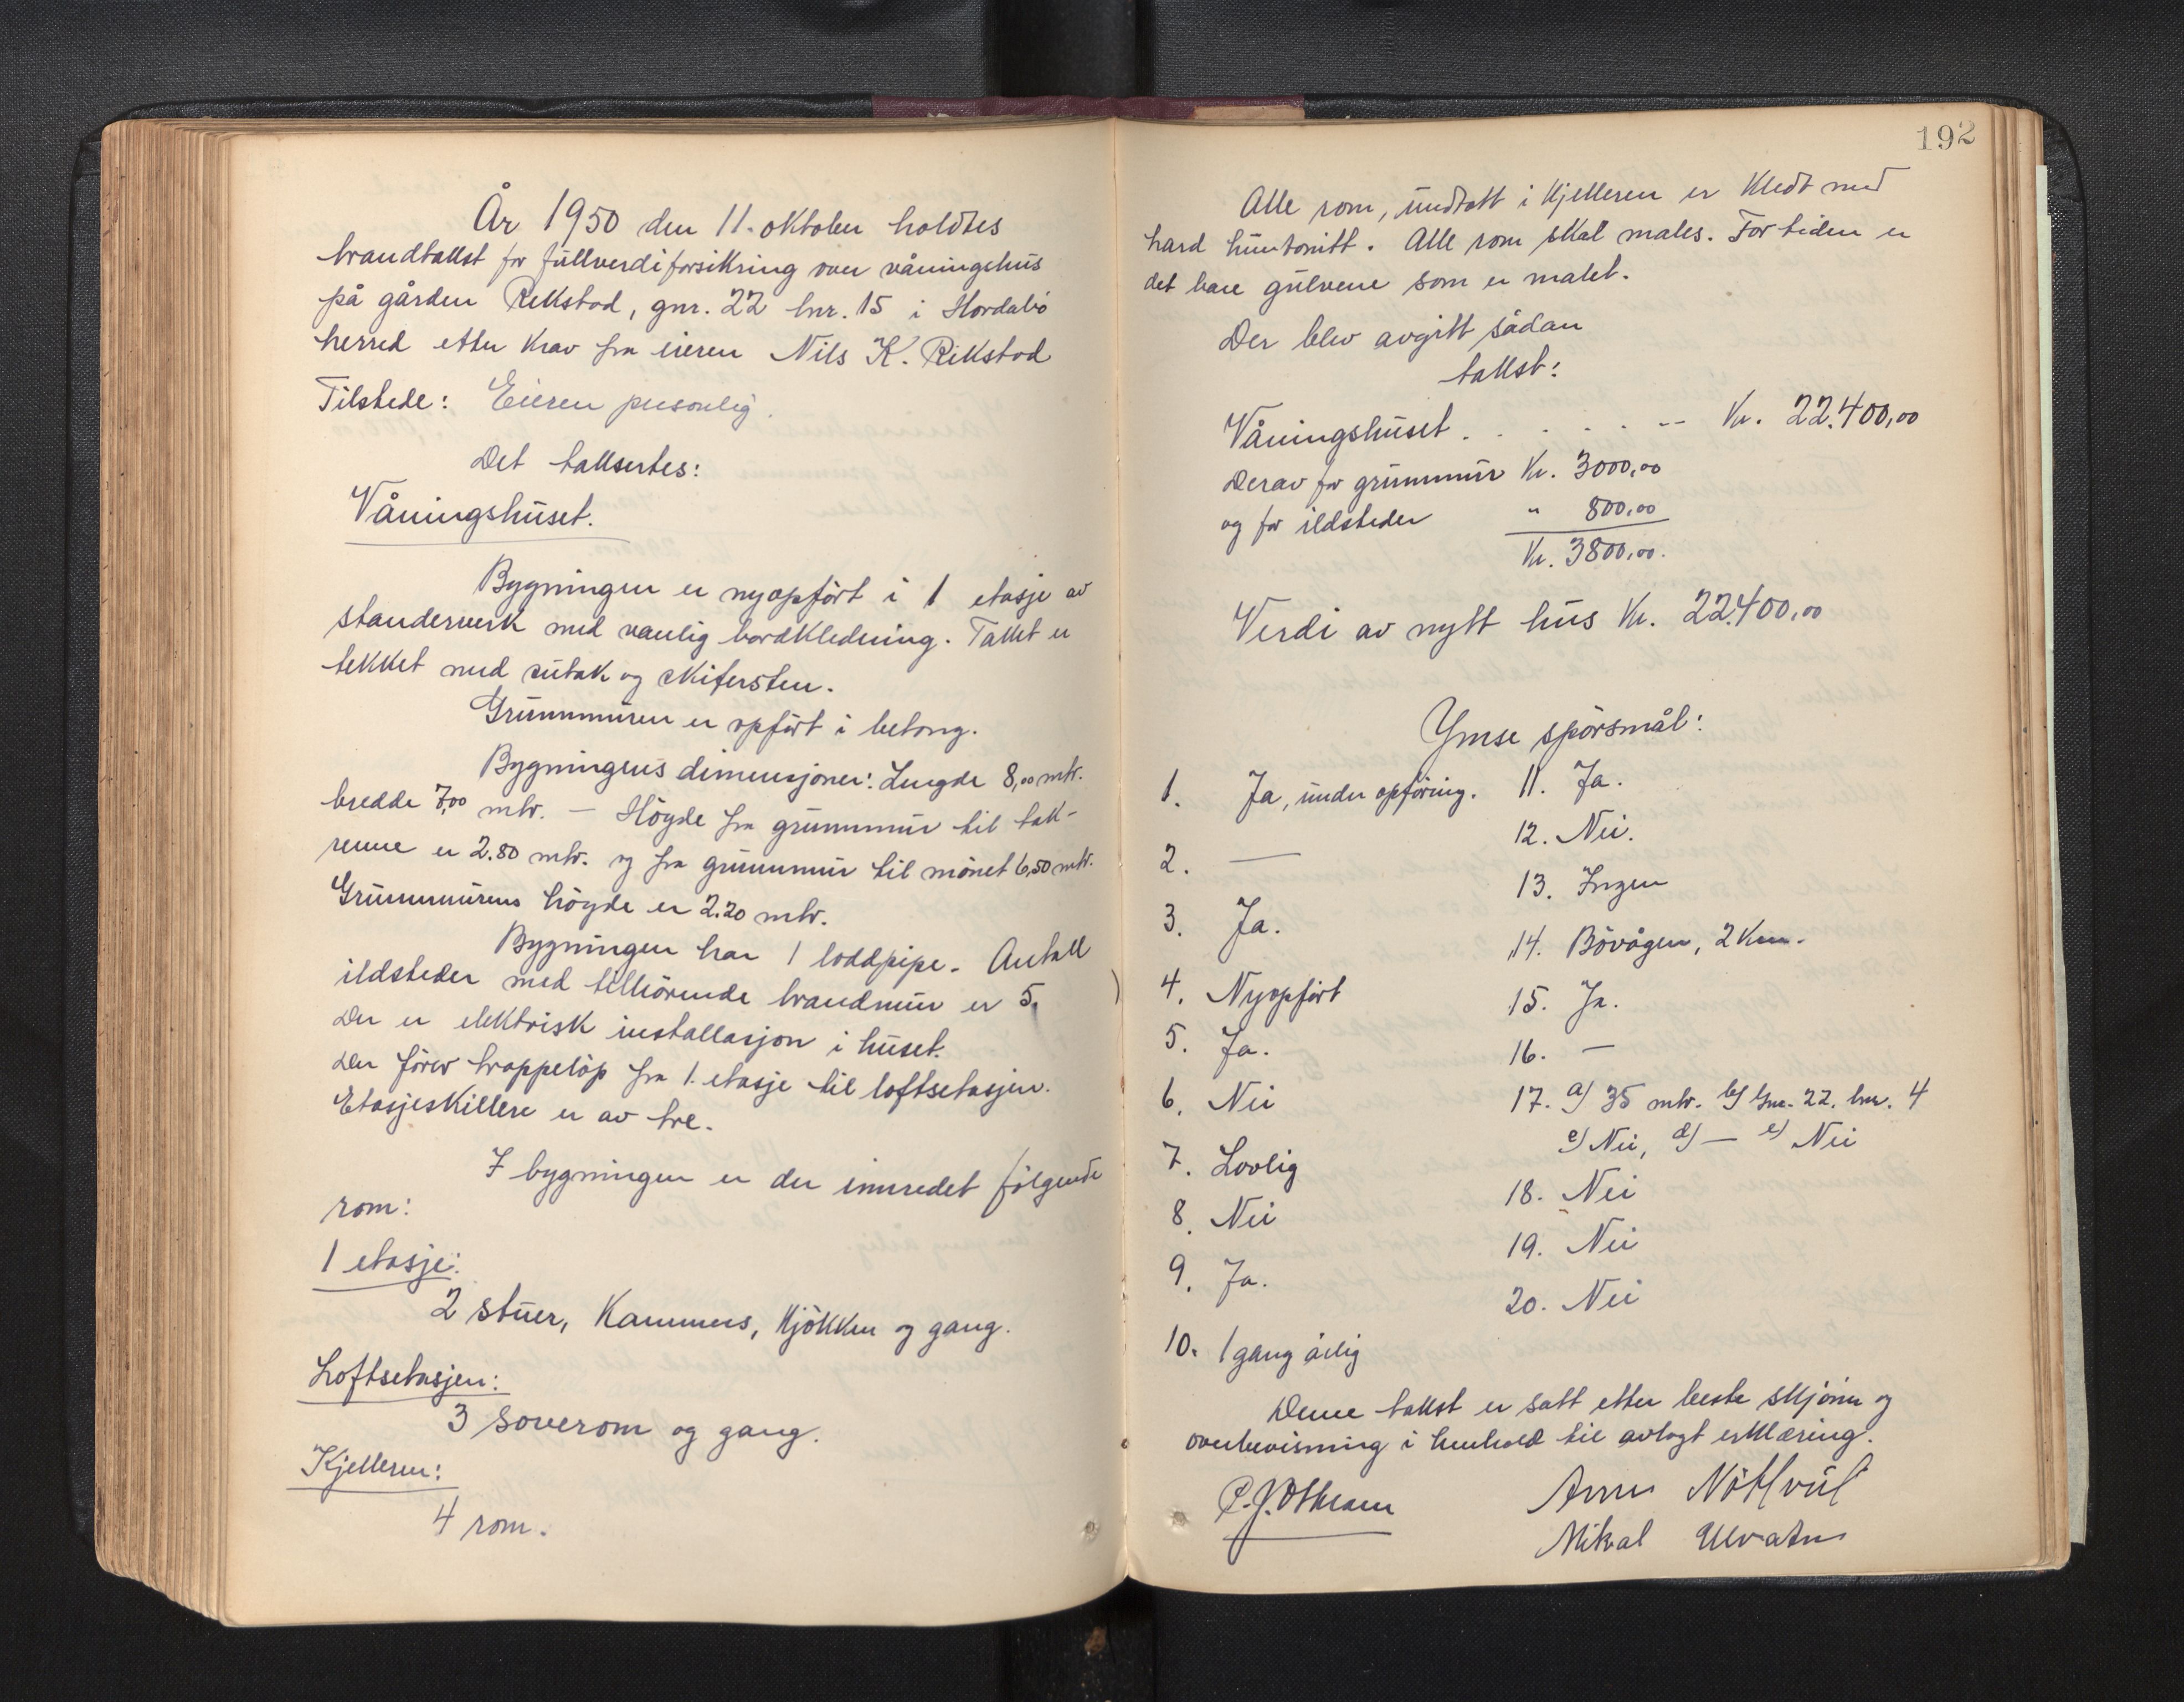 År 1950 den 11. oktober holdtes
brandtakst for fullverdiforsikring over våningshus
på gården Rekstad, gnr. 22 bnr. 15 i Hordabø
herred etter krav fra eieren Nils K. Rikstad
Tilstede: Eieren personlig.
Det taksertes:
Våningshuset.
Bygningen er nyopført i 1 etasje av
standerverk med vanlig bordkledning. Taket er
tekket med sutak og skifersten.
Grunnmuren er opført i betong.
Bygningens dimensjoner: Lengde 8,00 mtr.
bredde 7,00 mtr. — Høgde fra grunnmur til tak-
renne er 2.80 mtr. og fra grunnmur til mønet 6,50 mtr.
Grunnmurens høgde er 2.20 mtr.
Bygningen har 1 loddpipe. Antall
ildsteder med tilhørende brandmur er 5.
Der er elektrisk installasjon i huset.
Der fører trappeløp fra 1. etasje til loftsetasjen.
Etasjeskillere er av tre.
I bygningen er der innredet følgende
rom:
1 etasje:
2 stuer, Kammers, Kjøkken og gang.
Loftsetasjen:
3 soverom og gang.
Kjelleren:
4 rom.
192
Alle rom, undtatt i Kjelleren er Kledt med
hard huntonitt. Alle rom skal males. For tiden er
det bare gulvene som er malet.
Der blev avgitt sådan
takst:
Våningshuset . . . . . -- Kr. 22.400,00
Derav for grunnmur Kr. 3000,00
og for ildsteder " 800,00
Kr. 3800,00.
Verdi av nytt hus Kr. 22.400,00
Ymse spørsmål:
1. Ja, under opføring.
2. —
3. Ja.
4. Nyopført
5. Ja.
6. Nei
7. Lovlig
8. Nei
9. Ja.
10. 1 gang årlig
11. Ja.
12. Nei.
13. Ingen
14. Bøvågen, 2 Km.
15. Ja.
16. —
17. a) 35 mtr. b) Gnr. 22. bnr. 4
c) Nei, d) — e) Nei
18. Nei
19. Nei
20. Nei
Denne takst er satt etter beste skjønn og
overbevisning i henhold til avlagt erklæring.
Mikal